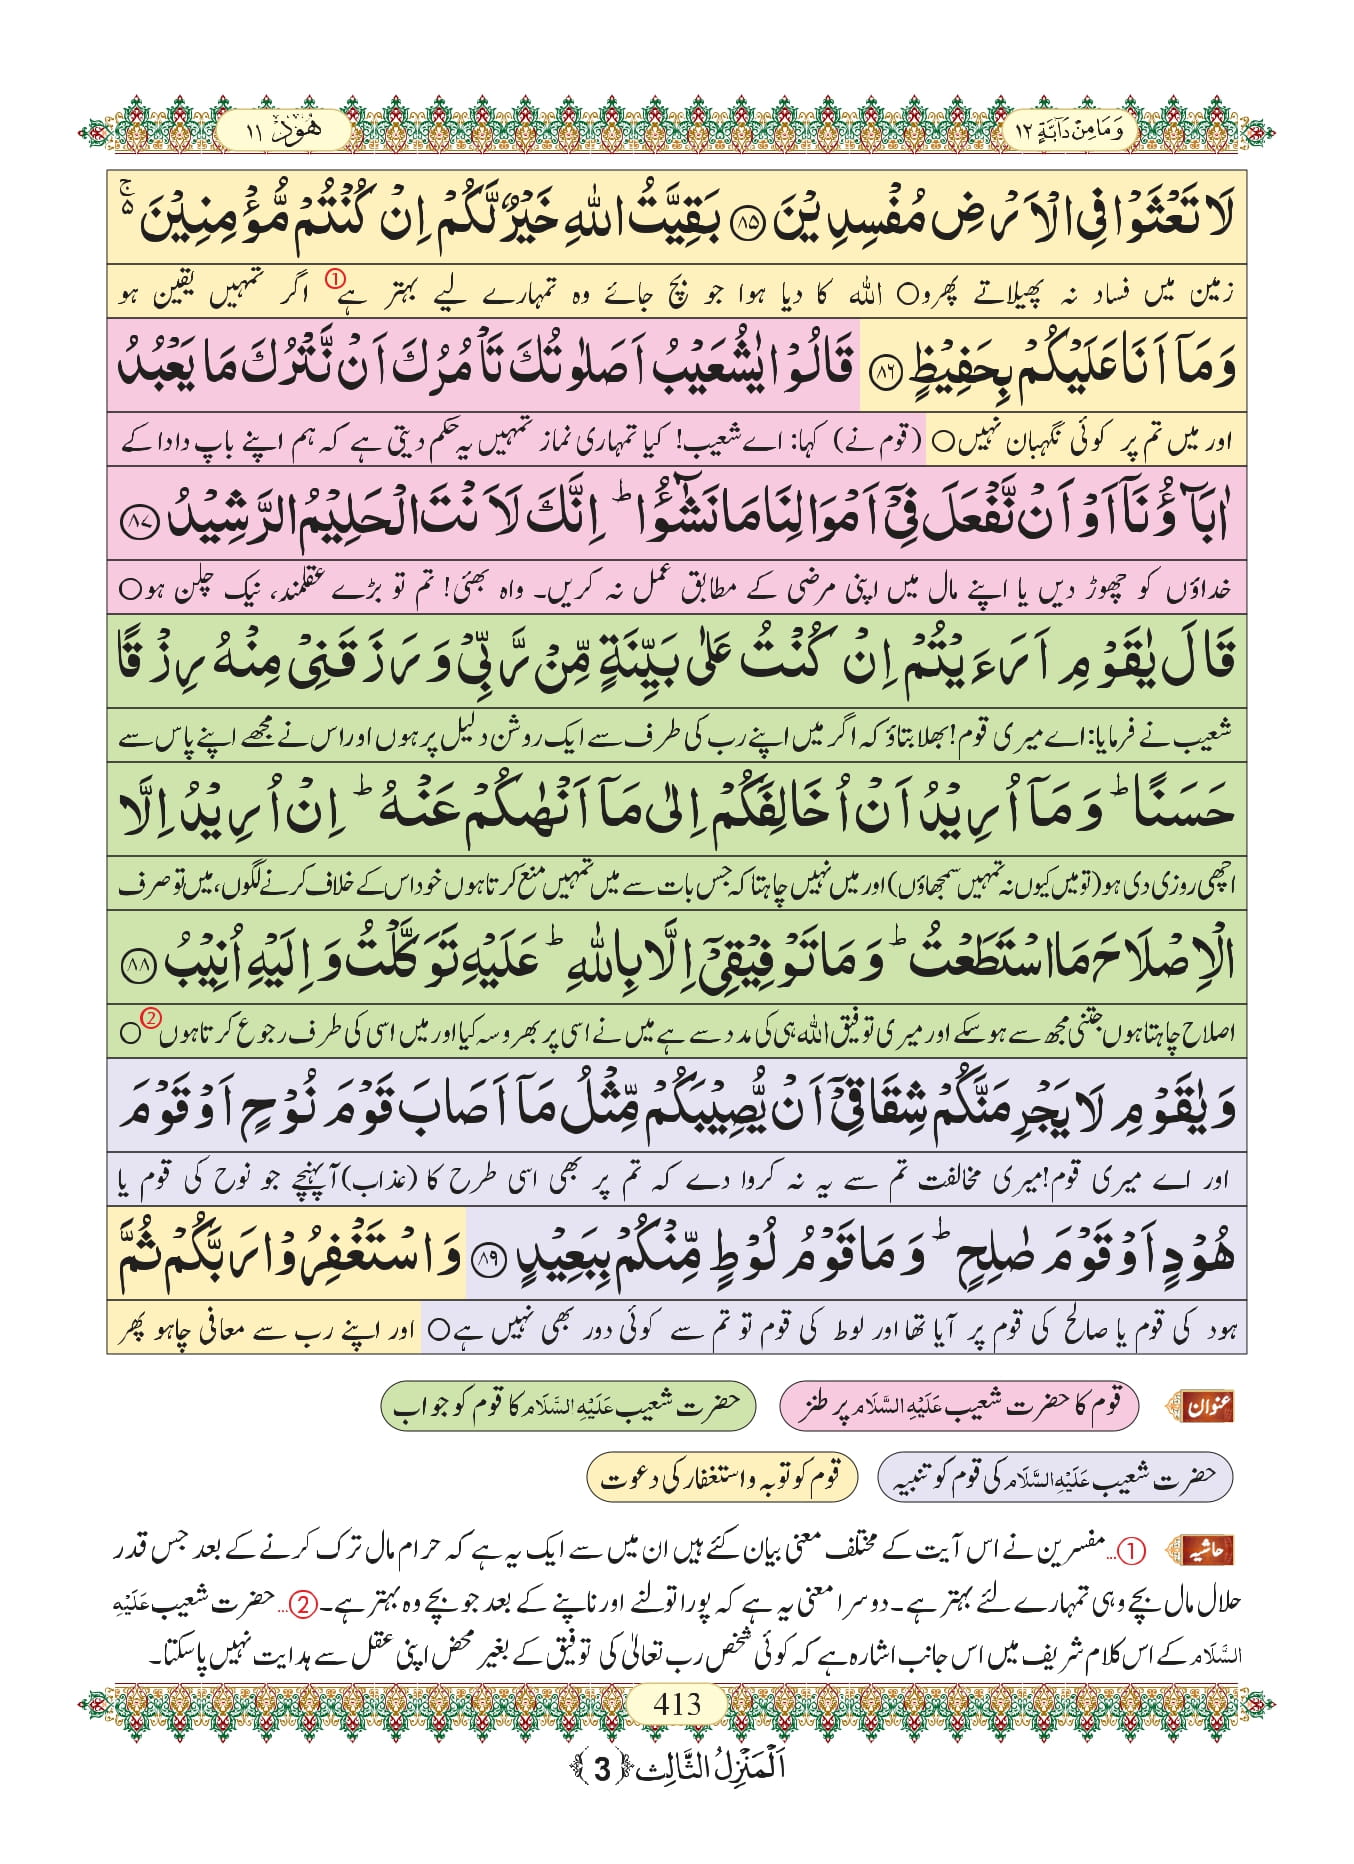 وَمَا مِنْ دَآبَّةٍ ١٢
هُوْد ١١
لَا تَعْثَوْا فِی الْاَرْضِ مُفْسِدِیْنَ ﴿۸۵﴾ بَقِیَّتُ اللّٰهِ خَیْرٌ لَّكُمْ اِنْ كُنْتُمْ مُّؤْمِنِیْنَ ۚ۬
زمین میں فساد نہ پھیلاتے پھرو○ اللہ کا دیا ہوا جو بچ جائے وہ تمہارے لیے بہتر ہے① اگر تمہیں یقین ہو
وَ مَاۤ اَنَا عَلَیْكُمْ بِحَفِیْظٍ ﴿۸۶﴾ قَالُوْا یٰشُعَیْبُ اَصَلٰوتُكَ تَاْمُرُكَ اَنْ نَّتْرُكَ مَا یَعْبُدُ
اور میں تم پر کوئی نگہبان نہیں○ (قوم نے) کہا: اے شعیب! کیا تمہاری نماز تمہیں یہ حکم دیتی ہے کہ ہم اپنے باپ دادا کے
اٰبَآؤُنَاۤ اَوْ اَنْ نَّفْعَلَ فِیْۤ اَمْوَالِنَا مَا نَشٰٓؤُا ؕ اِنَّكَ لَاَنْتَ الْحَلِیْمُ الرَّشِیْدُ ﴿۸۷﴾
خداؤں کو چھوڑ دیں یا اپنے مال میں اپنی مرضی کے مطابق عمل نہ کریں۔ واہ بھئی! تم تو بڑے عقلمند، نیک چلن ہو○
قَالَ یٰقَوْمِ اَرَءَیْتُمْ اِنْ كُنْتُ عَلٰى بَیِّنَةٍ مِّنْ رَّبِّیْ وَ رَزَقَنِیْ مِنْهُ رِزْقًا
شعیب نے فرمایا: اے میری قوم! بھلا بتاؤ کہ اگر میں اپنے رب کی طرف سے ایک روشن دلیل پر ہوں اور اس نے مجھے اپنے پاس سے
حَسَنًا ؕ وَ مَاۤ اُرِیْدُ اَنْ اُخَالِفَكُمْ اِلٰى مَاۤ اَنْهٰىكُمْ عَنْهُ ؕ اِنْ اُرِیْدُ اِلَّا
اچھی روزی دی ہو (تو میں کیوں نہ تمہیں سمجھاؤں) اور میں نہیں چاہتا کہ جس بات سے میں تمہیں منع کرتا ہوں خود اس کے خلاف کرنے لگوں، میں تو صرف
الْاِصْلَاحَ مَا اسْتَطَعْتُ ؕ وَ مَا تَوْفِیْقِیْۤ اِلَّا بِاللّٰهِ ؕ عَلَیْهِ تَوَكَّلْتُ وَ اِلَیْهِ اُنِیْبُ ﴿۸۸﴾
اصلاح چاہتا ہوں جتنی مجھ سے ہو سکے اور میری توفیق اللہ ہی کی مدد سے ہے میں نے اسی پر بھروسہ کیا اور میں اسی کی طرف رجوع کرتا ہوں②○
وَ یٰقَوْمِ لَا یَجْرِمَنَّكُمْ شِقَاقِیْۤ اَنْ یُّصِیْبَكُمْ مِّثْلُ مَاۤ اَصَابَ قَوْمَ نُوْحٍ اَوْ قَوْمَ
اور اے میری قوم! میری مخالفت تم سے یہ نہ کروا دے کہ تم پر بھی اسی طرح کا (عذاب) آپہنچے جو نوح کی قوم یا
هُوْدٍ اَوْ قَوْمَ صٰلِحٍ ؕ وَ مَا قَوْمُ لُوْطٍ مِّنْكُمْ بِبَعِیْدٍ ﴿۸۹﴾ وَ اسْتَغْفِرُوْا رَبَّكُمْ ثُمَّ
ہود کی قوم یا صالح کی قوم پر آیا تھا اور لوط کی قوم تو تم سے کوئی دور بھی نہیں ہے○ اور اپنے رب سے معافی چاہو پھر
عنوان قوم کا حضرت شعیب عَلَیْهِ السَّلَام پر طنز حضرت شعیب عَلَیْهِ السَّلَام کا قوم کو جواب
حضرت شعیب عَلَیْهِ السَّلَام کی قوم کو تنبیہ قوم کو توبہ و استغفار کی دعوت
حاشیہ ①...مفسرین نے اس آیت کے مختلف معنی بیان کئے ہیں ان میں سے ایک یہ ہے کہ حرام مال ترک کرنے کے بعد جس قدر
حلال مال بچے وہی تمہارے لئے بہتر ہے۔ دوسرا معنی یہ ہے کہ پورا تولنے اور ناپنے کے بعد جو بچے وہ بہتر ہے۔ ②...حضرت شعیب عَلَیْهِ
السَّلَام کے اس کلام شریف میں اس جانب اشارہ ہے کہ کوئی شخص رب تعالیٰ کی توفیق کے بغیر محض اپنی عقل سے ہدایت نہیں پاسکتا۔
413
اَلْمَنْزِلُ الثَّالِث ﴿3﴾